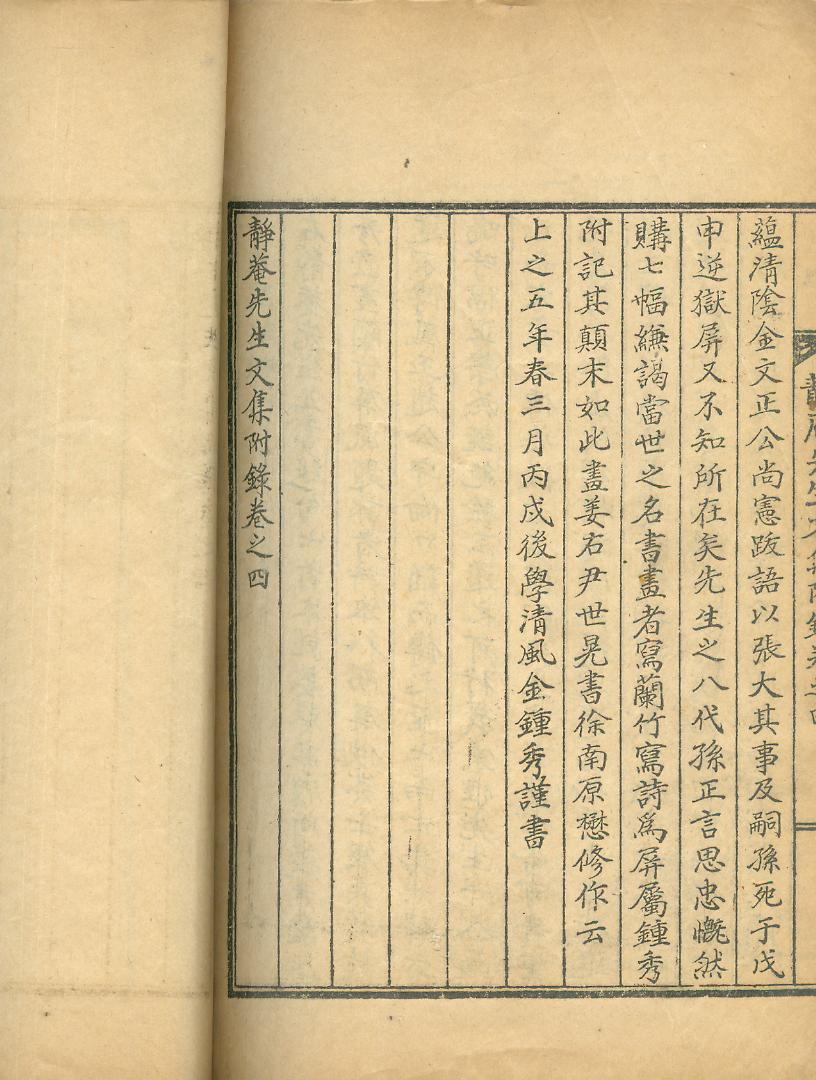 蘊清陰金文正公尚憲跋語以張大其事及嗣孫死于戊
申逆獄屏又不知所在矣先生之八代孫正言思忠慨然
購七幅縑謁當世之名書畫者寫蘭竹寫詩爲屏屬鍾秀
附記其顛末如此畫姜右尹世晃書徐南原懋修作云
上之五年春三月丙戌後學清風金鍾秀謹書
靜菴先生文集附錄卷之四